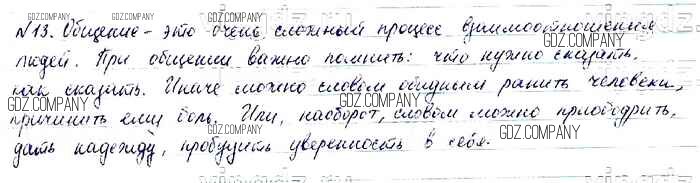 №13. Общение - это очень сложный процесс взаимоотношения
людей. При общении важно помнить: что нужно сказать,
как сказать. Иначе можно словом общения ранить человека,
причинить ему боль. Или, наоборот, словом можно приободрить,
дать надежду, пробудить уверенность в себя.
GDZ.COMPANY
GDZ.COMPANY
GDZ.COMPANY
GDZ.COMPANY
GDZ.COMPANY
GDZ.COMPANY
GDZ.COMPANY
GDZ.COMPANY